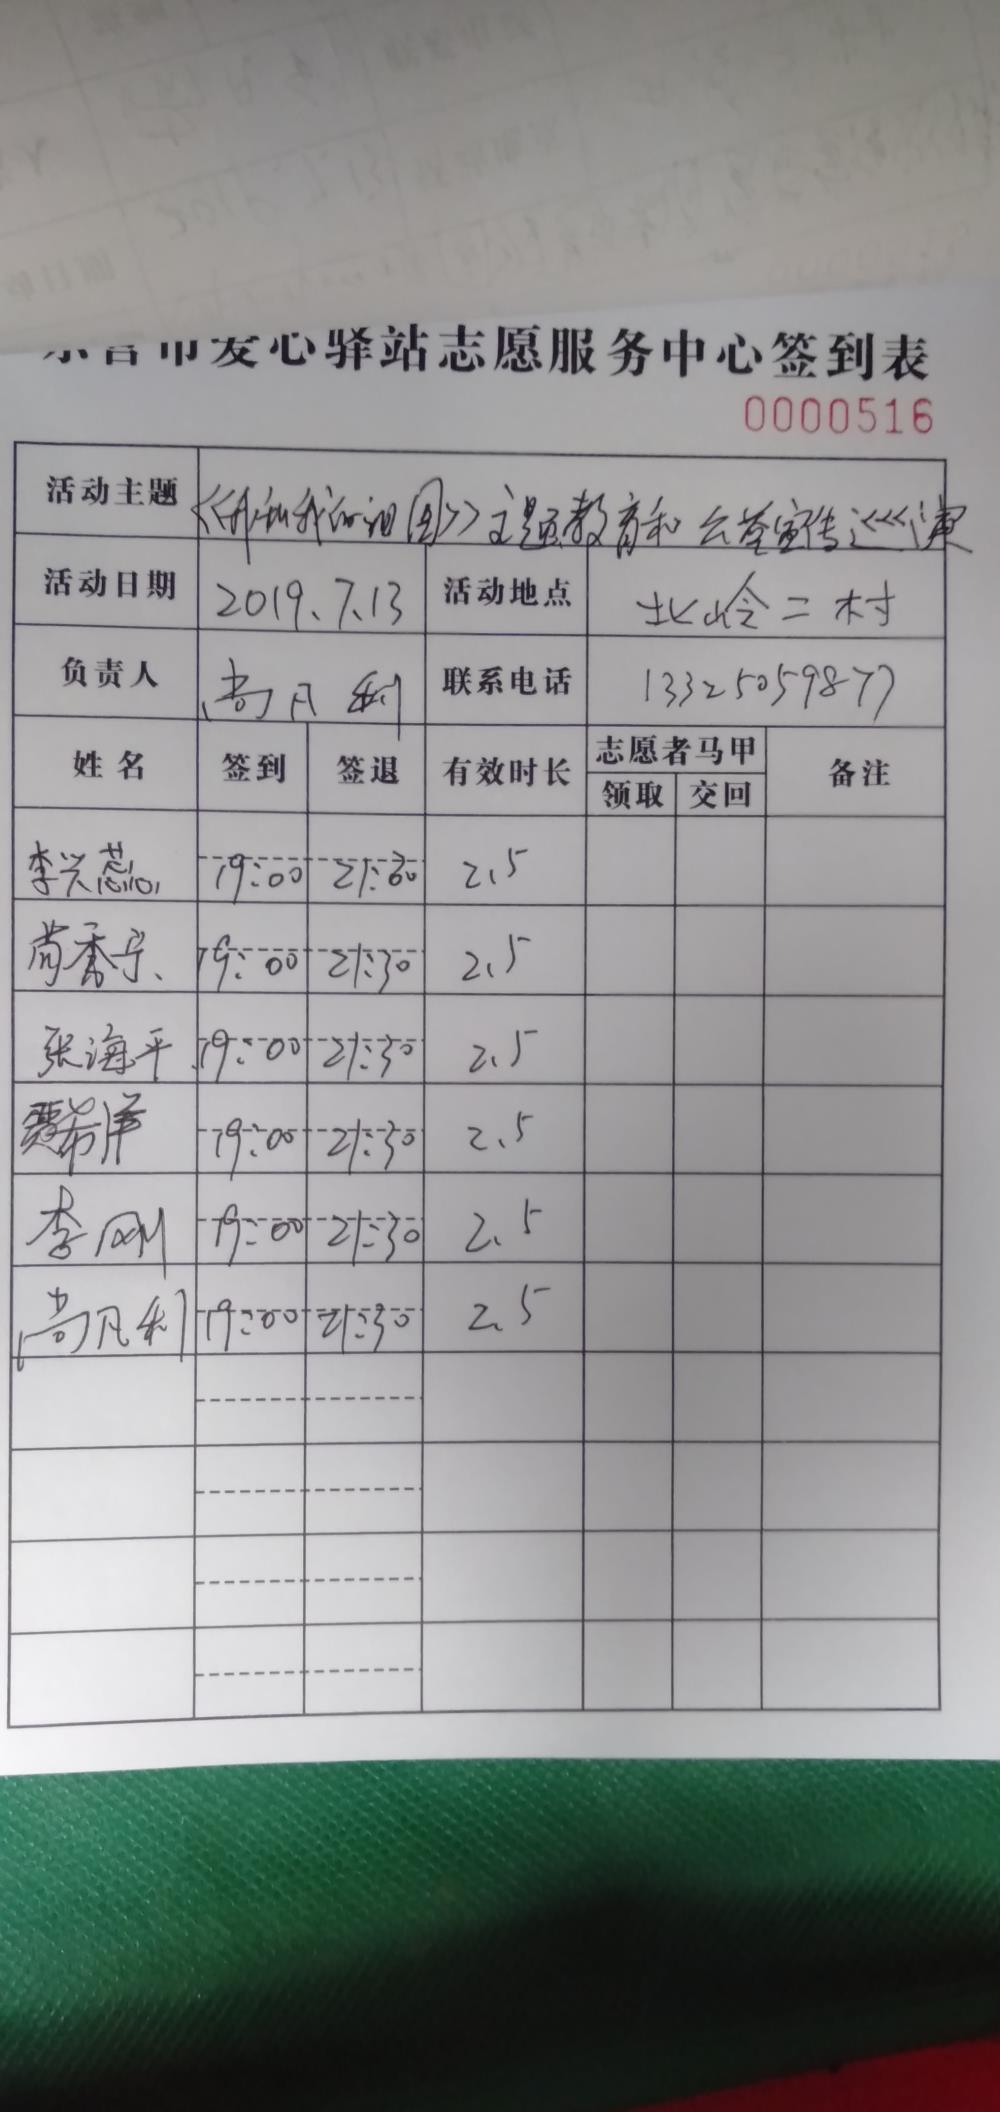 东营市爱心驿站志愿服务中心签到表
0000516
活动主题 《我和我的祖国》主题教育和公益宣传巡演
活动日期 2019.7.13 活动地点 北岭二村
负责人 尚凡利 联系电话 13325059877
姓名 签到 签退 有效时长 志愿者马甲 备注
领取 交回
李兴蕊 19:00 21:30 2.5
19:00 21:30 2.5
张海平 19:00 21:30 2.5
贾希洋 19:00 21:30 2.5
李刚 19:00 21:30 2.5
尚凡利 19:00 21:30 2.5